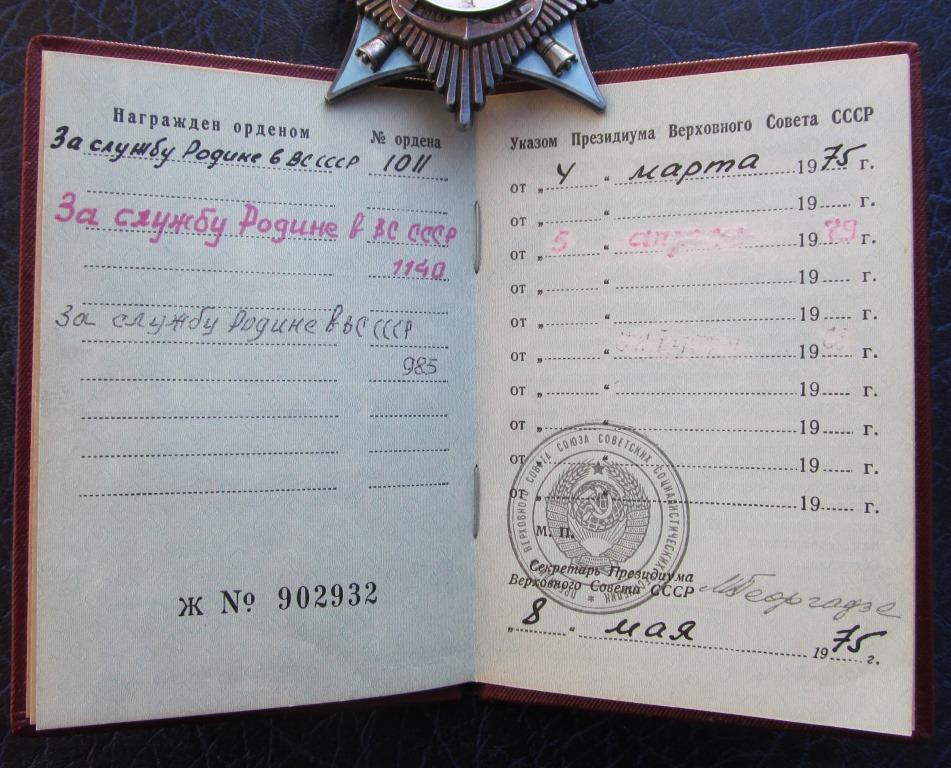 Награжден орденом № ордена
За службу Родине в ВС СССР 1011
За службу Родине в ВС СССР
1140
За службу Родине в ВС СССР
985
Ж № 902932
Указом Президиума Верховного Совета СССР
от „ 4 “ марта 1975 г.
от „ “ 19 г.
от „ 5 “ 1979 г.
от „ “ 19 г.
от „ “ 19 г.
от „ “ 19 г.
от „ “ 19 г.
от „ “ 19 г.
от „ “ 19 г.
от „ “ 19 г.
ВЕРХОВНОГО СОВЕТА СОЮЗА СОВЕТСКИХ СОЦИАЛИСТИЧЕСКИХ
М. П.
Секретарь Президиума
Верховного Совета СССР МГеоргадзе
„ 8 “ мая 1975 г.